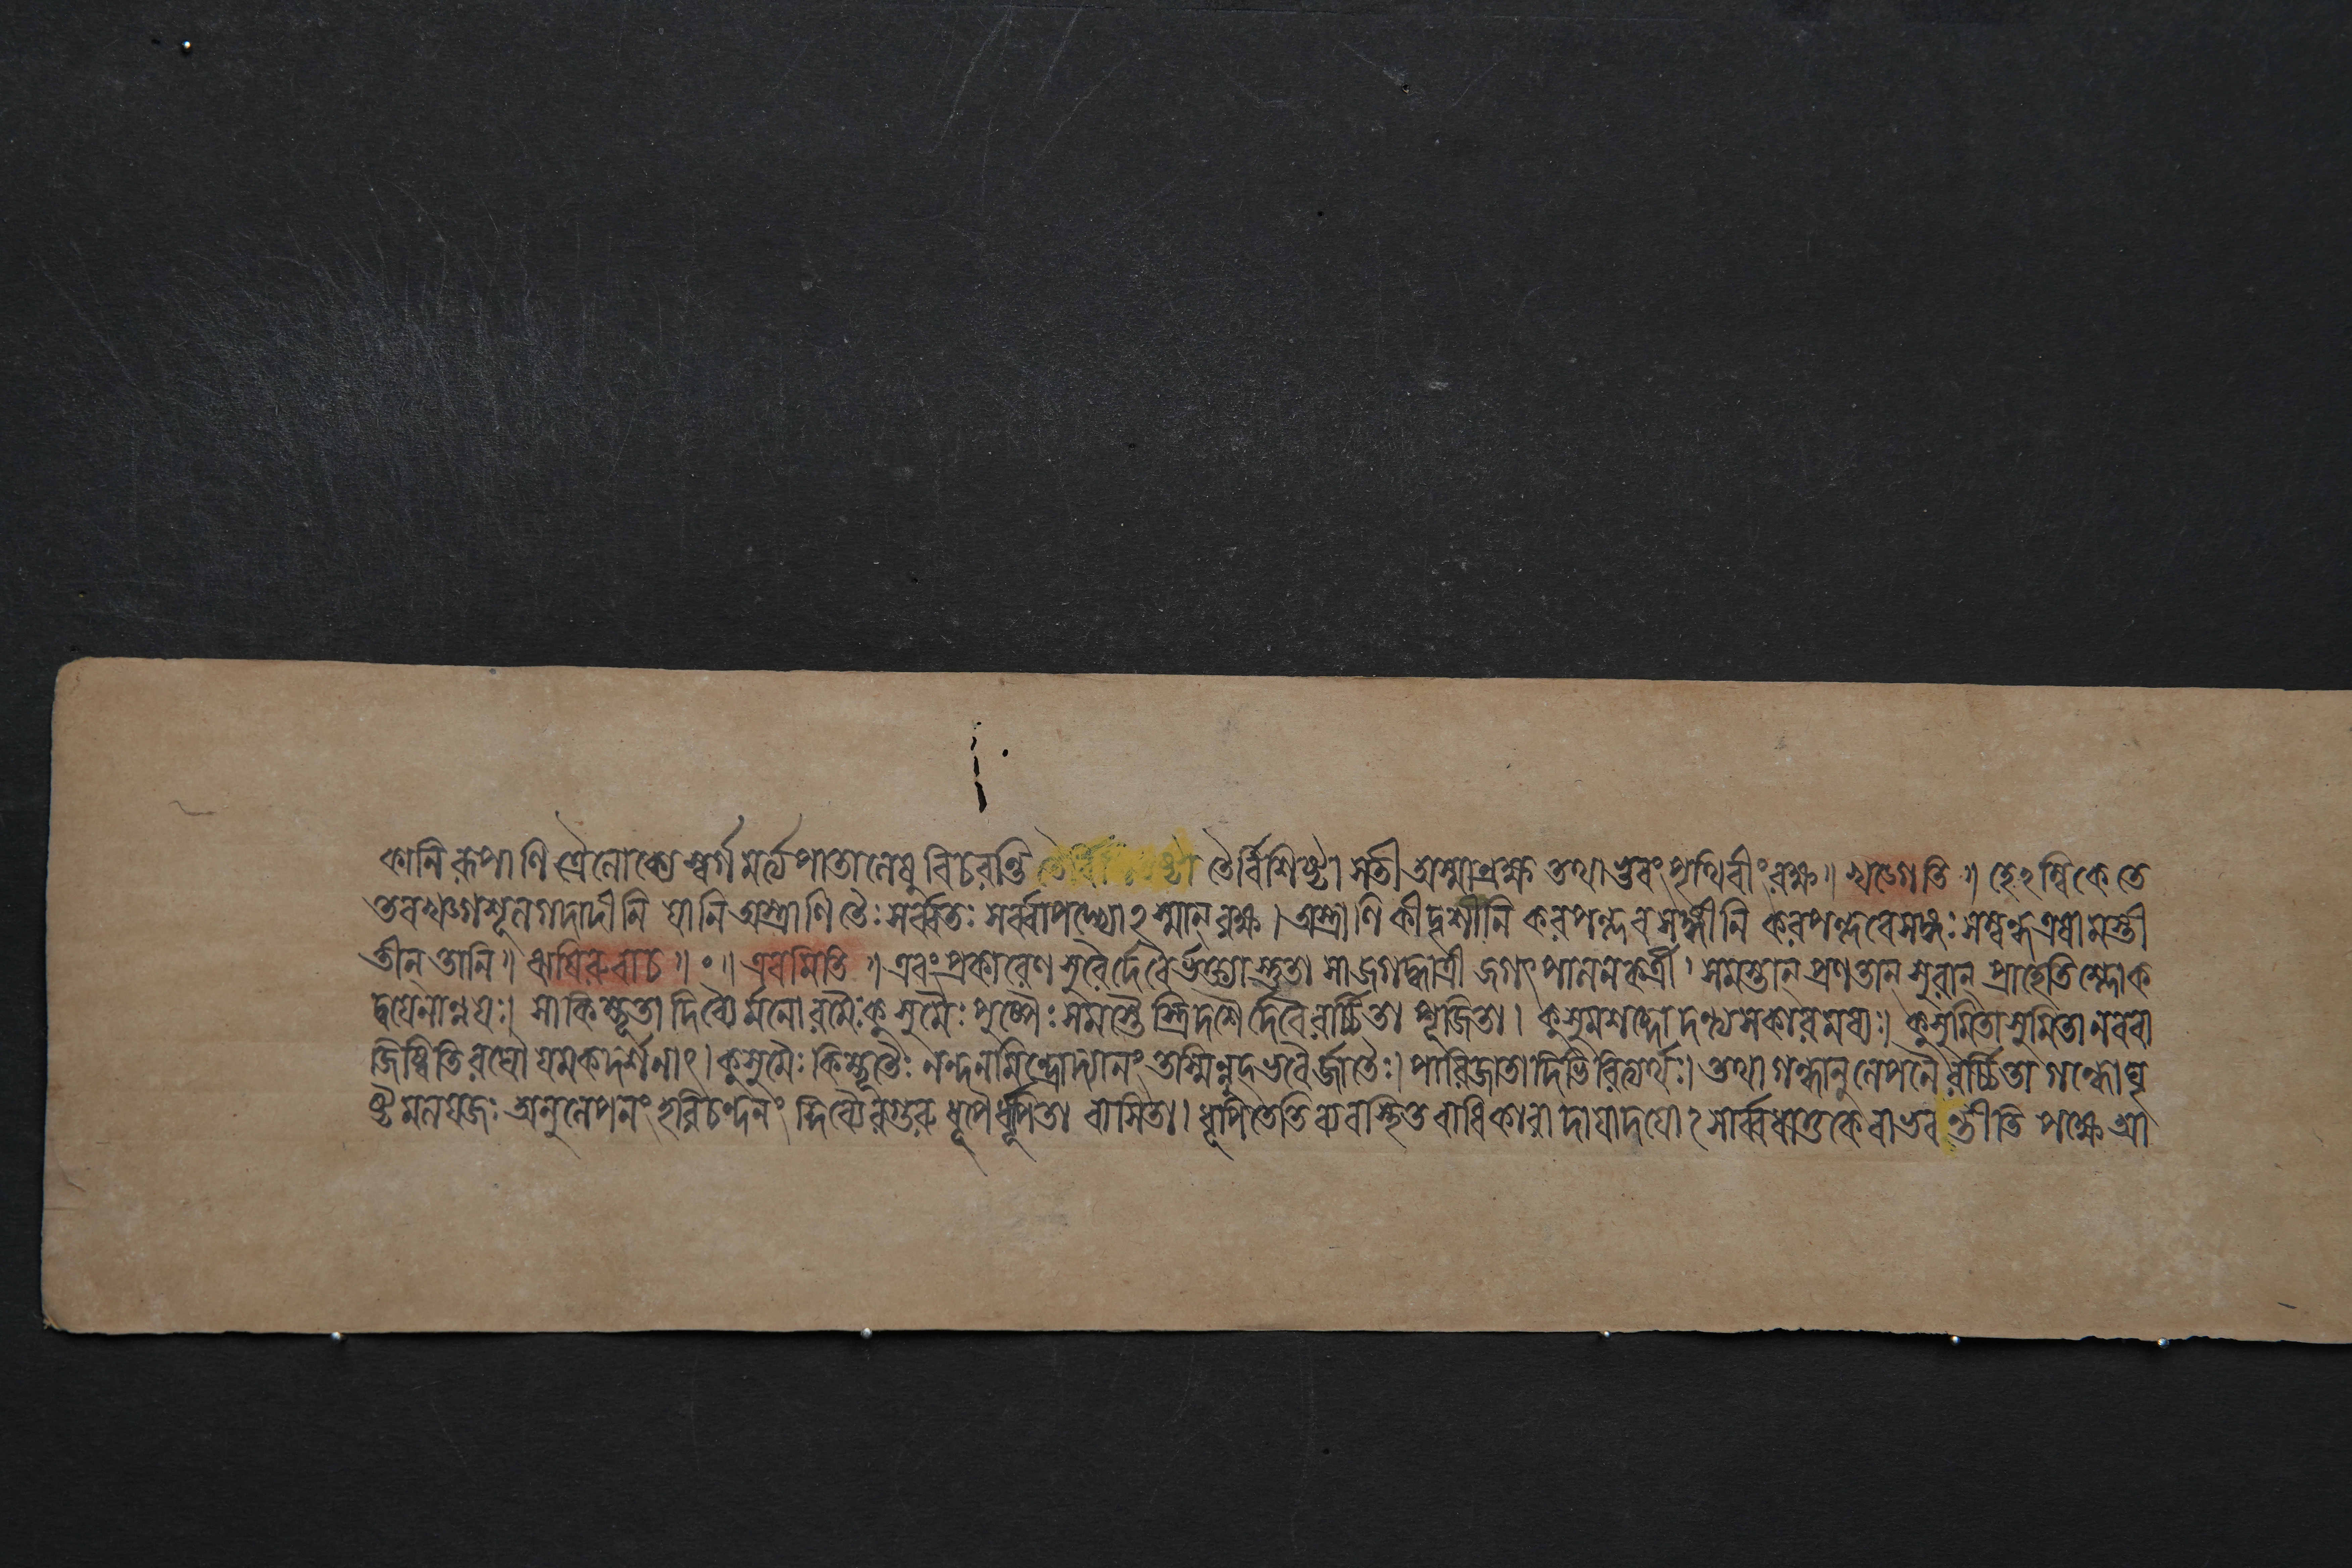 কানি রূপাণি ত্রৈলোক্যে স্বর্গমর্ত্ত্যপাতালেষু বিচরন্তি তৈর্বিশিষ্টা সতী অস্মান্রক্ষ তথা ভুবং পৃথিবীং রক্ষ॥ খড়্গেতি॥ হেঽম্বিকে তে
তব খড়্গশূলগদাদীনি যানি অস্ত্রাণি তৈঃ সর্ব্বতঃ সর্ব্বাপদ্ভ্যোঽস্মান্ রক্ষ। অস্ত্রাণি কীদৃশানি করপল্লবসঙ্গীনি করপল্লবে সঙ্গঃ সম্বন্ধ এষামস্তী
তীন্ তানি॥ ঋষিরুবাচ॥ ॰॥ এবমিতি॥ এবং প্রকারেণ সুরৈর্দেবৈর্ভক্ত্যা স্তুতা সা জগদ্ধাত্রী জগৎপালনকর্ত্রী। সমস্তান্ প্রণতান্ সুরান্ প্রাহেতি শ্লোক
দ্বয়েনান্বয়ঃ। সা কিম্ভূতা দিব্যৈর্মনোরমৈঃ কুসুমৈঃ পুষ্পৈঃ সমস্তৈস্ত্রিদশৈর্দেবৈরর্চ্চিতা পূজিতা। কুসুমশব্দো দন্ত্যসকারমধ্যঃ। কুসুমিতাসুমিতা নববা
জিষ্বিতি রঘৌ যমকদর্শনাৎ। কুসুমৈঃ কিম্ভূতৈঃ নন্দনমিন্দ্রোদ্যানং তস্মিন্নুদ্ভবৈর্জাতৈঃ। পারিজাতাদিভিরিত্যর্থঃ। তথা গন্ধানুলেপনৈরর্চ্চিতা গন্ধো ঘৃ
ষ্টমলয়জঃ অনুলেপনং হরিচন্দনং দিব্যৈরগুরুধূপৈর্ধূপিতা বাসিতা। ধূপিতেতি ব্যবস্থিতবাধিকারাদায়াদয়োঽসার্ব্বধাতুকে বা ভবন্তীতি পক্ষে আ